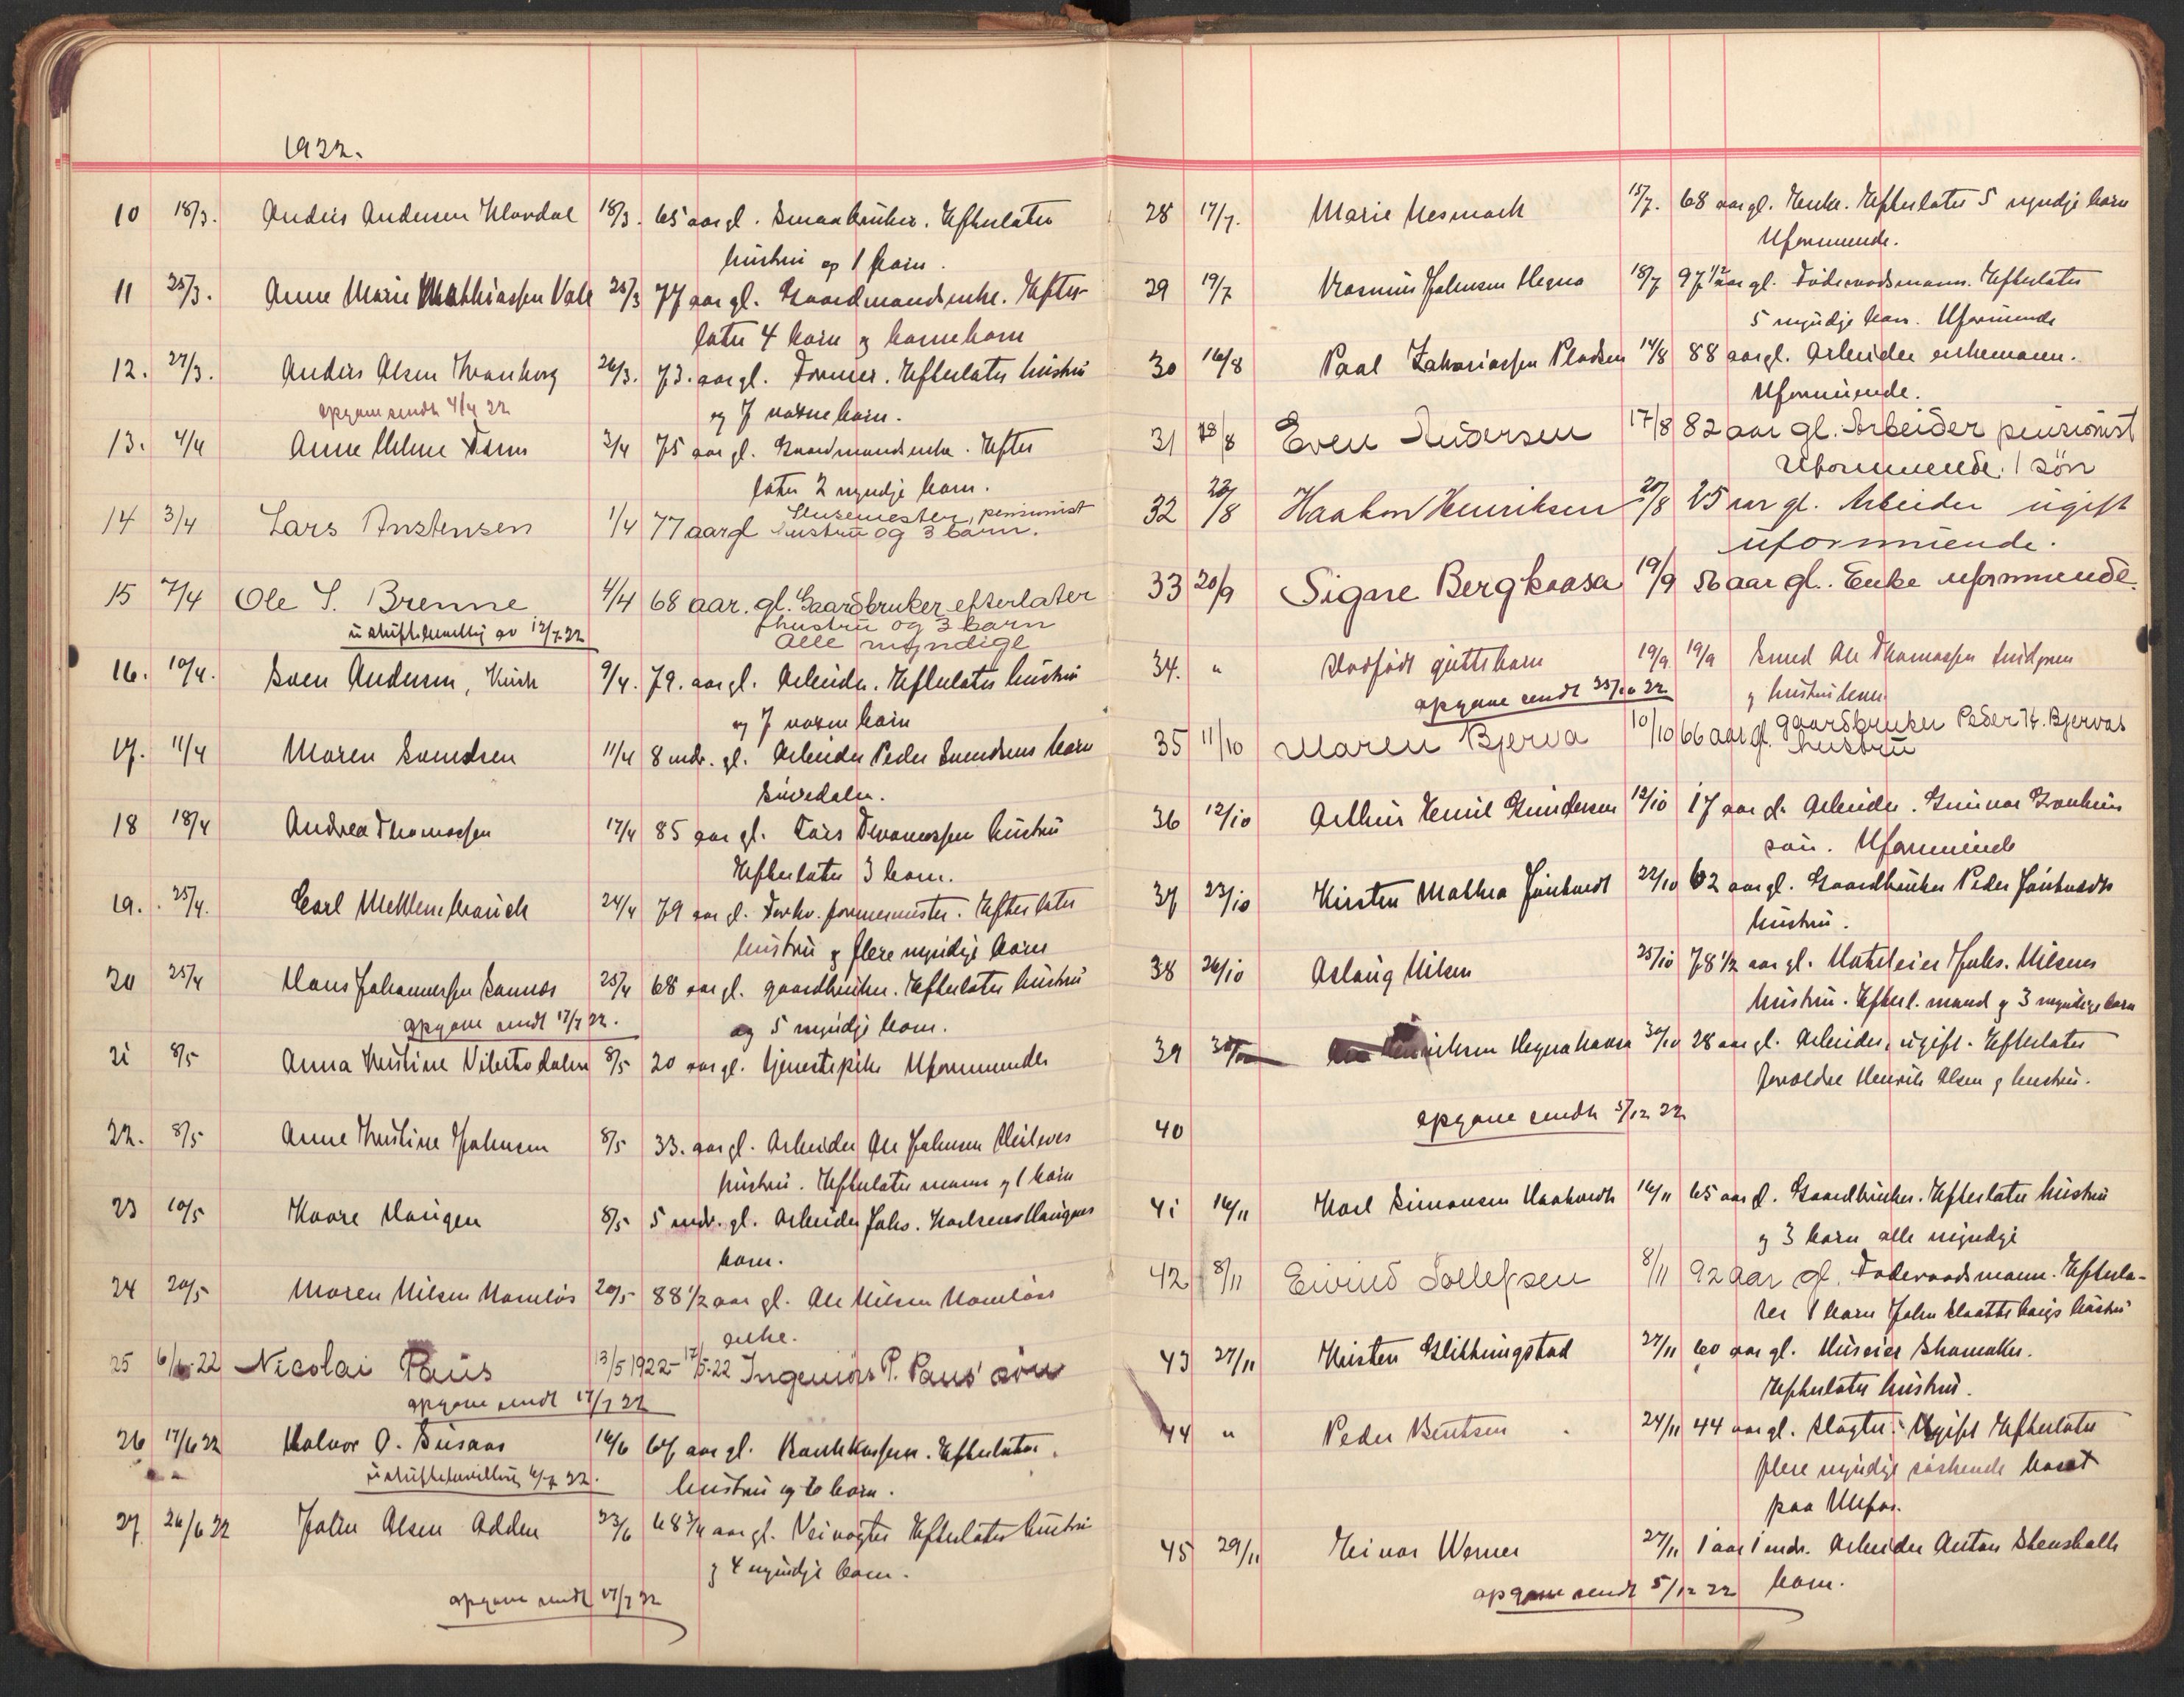 1922.
10 18/3. Anders Andersen Klovdal 18/3. 65 aar gl. Smaabruker. Efterlater
hustru og 1 barn.
11 25/3. Anne Marie Mathiassen Vale 25/3 77 aar gl. Gaardmandsenke. Efter-
later 4 barn og barnebarn
12. 27/3. Anders Olsen Kvanborg 26/3. 73. aar gl. Former. Efterlater hustru
opgave sendt 4/4 22 og 7 voksne barn.
13. 4/4 Anne Helene 3/4 75 aar gl. Gaardmandsenke. Efter
later 2 myndje barn.
14 3/4 Lars Anstensen 1/4 77 aar gl Slusemester, pensionist
hustru og 3 barn.
15 7/4 Ole S. Brenne 4/4 68 aar. gl. Gaardbruker efterlater
hustru og 3 barn
uskiftebevillig av 12/7 22 alle myndige
16. 10/4. Sven Andersen, Kirk 9/4. 79. aar gl. Arbeider. Efterlater hustru
og 7 voksne barn
17. 11/4 Maren Svendsen 11/4 8 mdr. gl. Arbeider Peder Svendsens barn
18 18/4 Andrea Thomassen 17/4 85 aar gl. Lars Thomassen hustru
Efterlater 3 barn.
19. 25/4. Carl 24/4 79 aar gl. Forhv. formermester. Efterlater
hustru og flere myndige barn
20 25/4 Hans Johannessen Sannes 25/4 68 aar gl. gaardbruker. Efterlater hustru
opgave sendt 17/7 22. og 5 myndje barn.
21 8/5 Anna Kristine Vibetodalen 8/5 20 aar gl. tjenestepike Uformuende
22. 8/5 Anne Kristine Johnsen 8/5 33. aar gl. Arbeider Ole Johnsen
hustru. Efterlater mann og 1 barn
23 10/5 Kaare Haugen 8/5 5 mdr. gl. Arbeider Johs. Karlsens Haugens
barn.
24 20/5 Maren Nilsen Namløs 20/5 88 1/2 aar gl. Ole Nilsen Namløs
enke.
25 6/6-22 Nicolai Paus 13/5 1922- 17/5-22 Ingeniør P. Paus' søn
opgave sendt 17/7 22
26 17/6 22 Halvor O. Susaas 16/6 67 aar gl. Bankkasserer. Efterlater
uskiftebevilling 4/7 22. hustru og 6 barn.
27 26/6 22 John Olsen Odden 23/6 68 3/4 aar gl. Veivogter Efterlater hustru
og 4 myndje barn.
opgave sendt 17/7 22
28 17/7. Marie Nesmark 15/7. 68 aar gl. Enke. Efterlater 5 myndje barn
Uformuende.
29 19/7 Rasmus Johnsen Hegna 18/7 97 1/2 aar gl. Føderaadsmann. Efterlater
5 myndje barn. Uformuende
30 16/8 Paal Zakariassen Pladsen 14/8 88 aar gl. Arbeider enkemann.
Uformuende.
31 18/8 Even Andersen 17/8 82 aar gl. Arbeider pensionist
Uformuende. 1 søn
32 22/8 Haakon Henriksen 20/8 25 aar gl. Arbeider ugift
uformuende.
33 20/9 Signe Bergkaasa 19/9 56 aar gl. Enke uformuende.
34. " Dødfødt guttebarn 19/9 19/9 Smed Ole Thomassen
opgave sendt 25/10 22 og hustrus barn
35 11/10 Maren Bjerva 10/10 66 aar gl. Gaardbruker Peder H. Bjervas
hustru
36 12/10 Arthur Emil Gundersen 12/10 17 aar gl. Arbeider. Gunnar
søn. Uformuende
37 23/10 Kirsten Mathea Jønholdt 22/10 62 aar gl. Gaardbruker Peder Jønholdts
hustru.
38 26/10 Aslaug Nilsen 25/10 78 1/2 aar gl. Johs. Nilsens
hustru. Efterl. mand og 3 myndige barn
39 Henriksen Hegnahaasa 30/10 28 aar gl. Arbeider, ugift. Efterlater
forældre Henrik Olsen og hustru.
40 opgave sendt 5/12 22
41 16/11 Karl Simonsen Haakonsdt 16/11 65 aar gl. Gaardbruker. Efterlater hustru
og 3 barn alle myndje
42 8/11 Eivind Tollefsen 8/11 92 aar gl. Føderaadsmann. Efterla-
ter 1 barn John Slaattehaugs hustru
43 27/11 Kristen Glittingstad 27/11 60 aar gl. Huseier Skomaker.
Efterlater hustru.
44 " Peder Bentsen 24/11 44 aar gl. Slagter. Ugift Efterlater
flere myndige søskende bosat
paa Ulefos.
45 29/11 Einar Werner 27/11 1 aar 1 mdr. Arbeider Anton Stenshalls
opgave sendt 5/12 22 barn.